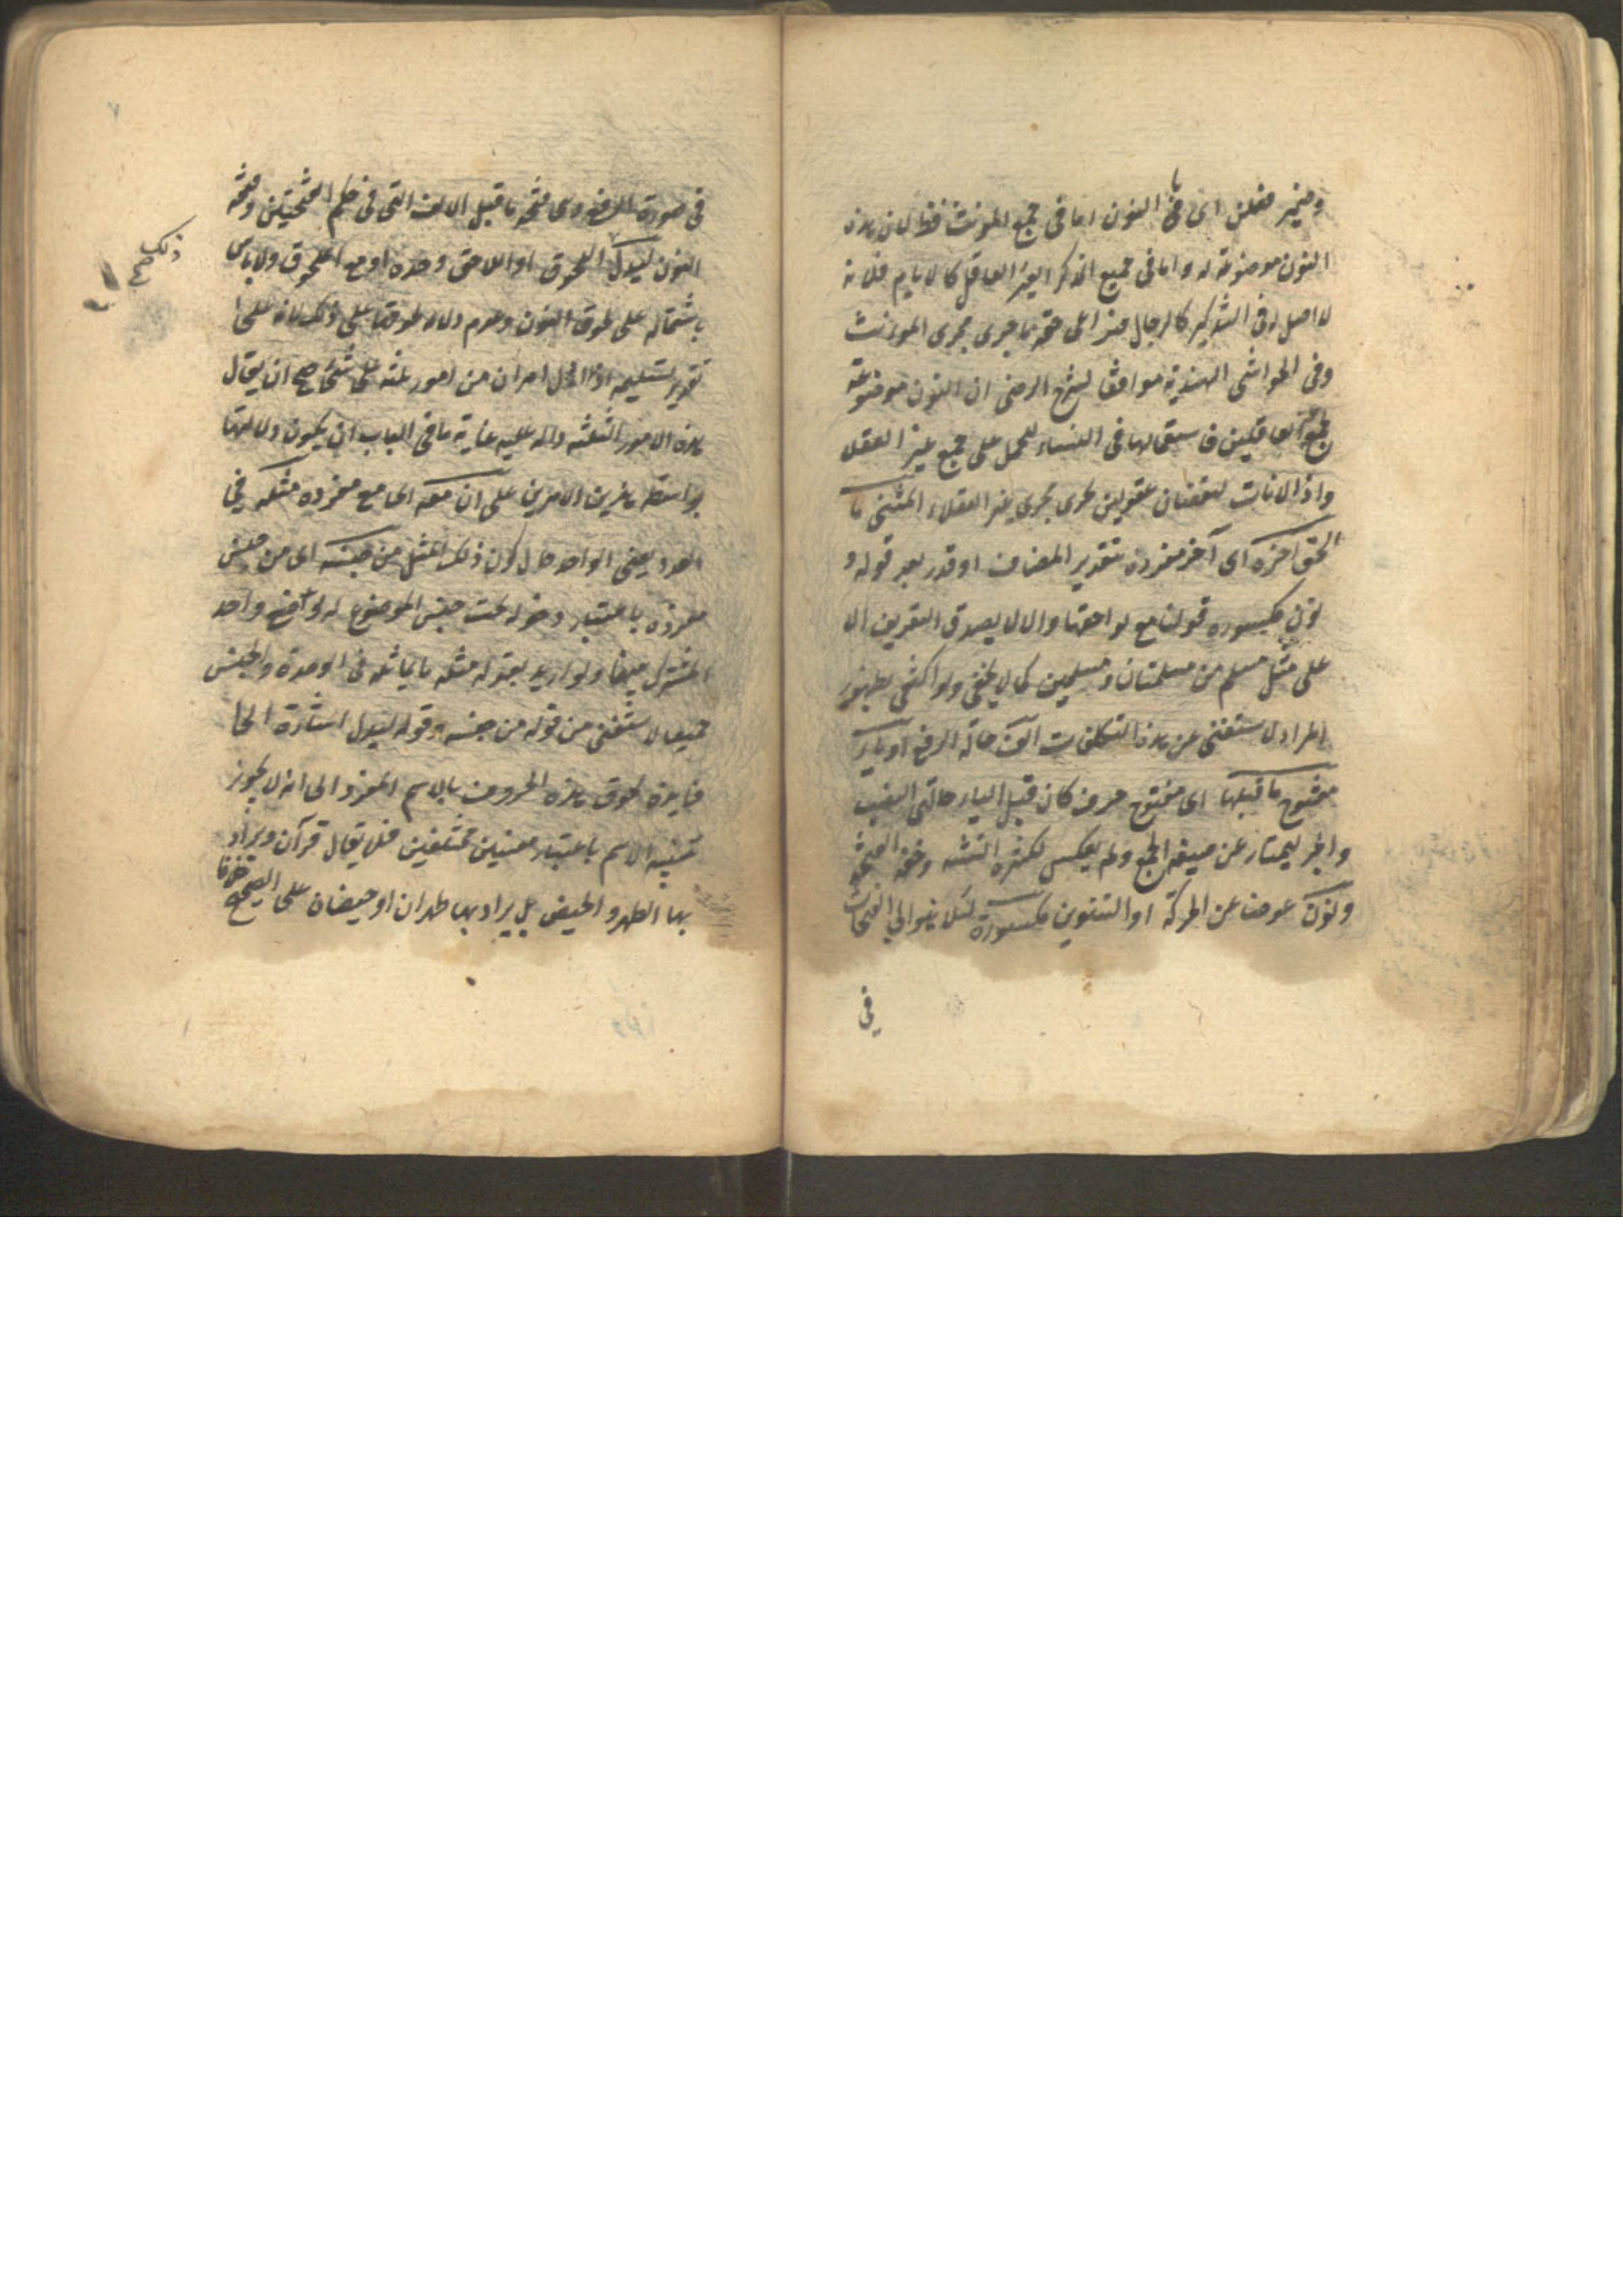 وضمير فعلن اى فى النون اما فى جمع المونث فظ لان هذه
النون موضوعة له واما فى جميع المذكر الغير العاقل كالايام فلانه
لا اصل له فى التذكير كالرجال حتى مجرى المونث
وفى الحواشى الهندية موافقا لشرح الرضى ان النون موضوعة
فى النساء للحمل على جمع غير العقلاء
واذ الاناث لنقصان عقولهن يجرى مجرى غير العقلاء المثنى ما
لحق آخره اى آخر مفرده بتقدير المضاف او قدر بعد قوله و
نون مكسورة قولنا مع لواحقها والا لا يصدق التعريف الا
على مثل مسلم من مسلمان ومسلمين كما لا يخفى ولو اكتفى بظهور
المراد لاستغنى عن هذه التكلفات الف حالة الرفع او ياء
مفتوح ما قبلها اى مفتوح حرف كان قبل الياء حالتى النصب
والجر ليمتاز عن صيغة الجمع ولم يعكس لكثرة التثنية وخفة الفتحة
ونون عوضا عن الحركة او التنوين مكسورة لئلا يتوالى الفتحات
فى
فى صورة الرفع وهى فتحة ما قبل الالف التى فى حكم الفتحتين وفتحة
النون ليدل اللحوق او اللاحق وحده او مع الملحوق ولا باس
باشتماله على لحوق النون وعدم دلالة لحوقها على ذلك لانه على
تقدير تسليمه اذا دل امران من امور ثلثة على شئ صح ان يقال
هذه الامور الثلثة دالة عليه غاية ما فى الباب ان يكون دلالتها
بواسطة هذين الامرين على ان معه اى مع مفرده مثله فى
العدد يعنى الواحد حال كون ذلك المثل من جنسه اى من جنس
مفرده باعتبار دخوله تحت جنس الموضوع له لوضع واحد
المشترك بينهما ولو اريد بقوله مثله ما يماثله فى الوحدة والجنس
جميعا لاستغنى من قوله من جنسه وقوله ليدل اشارة الى
فايدة لحوق هذه الحروف بالاسم المفرد الى انه لا يجوز
تثنية الاسم باعتبار معنيين مختلفين فلا يقال قرآن ويراد
بها الطهر والحيض بل يراد بهما طهران او حيضان على الصحيح خلافا
ذلك